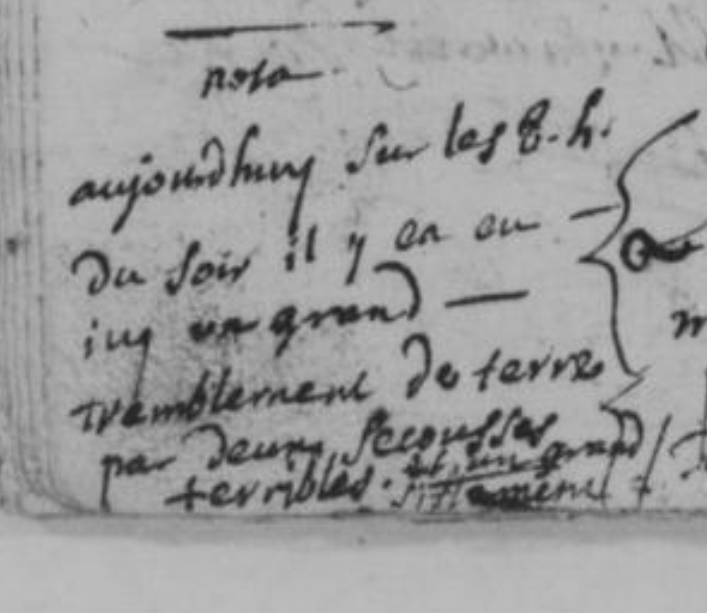 nota
aujourdhuy sur les 8. h.
du soir il y en eu
icy un grand
tremblement de terre
par deux secousses
terribles. et un grand
sifflement